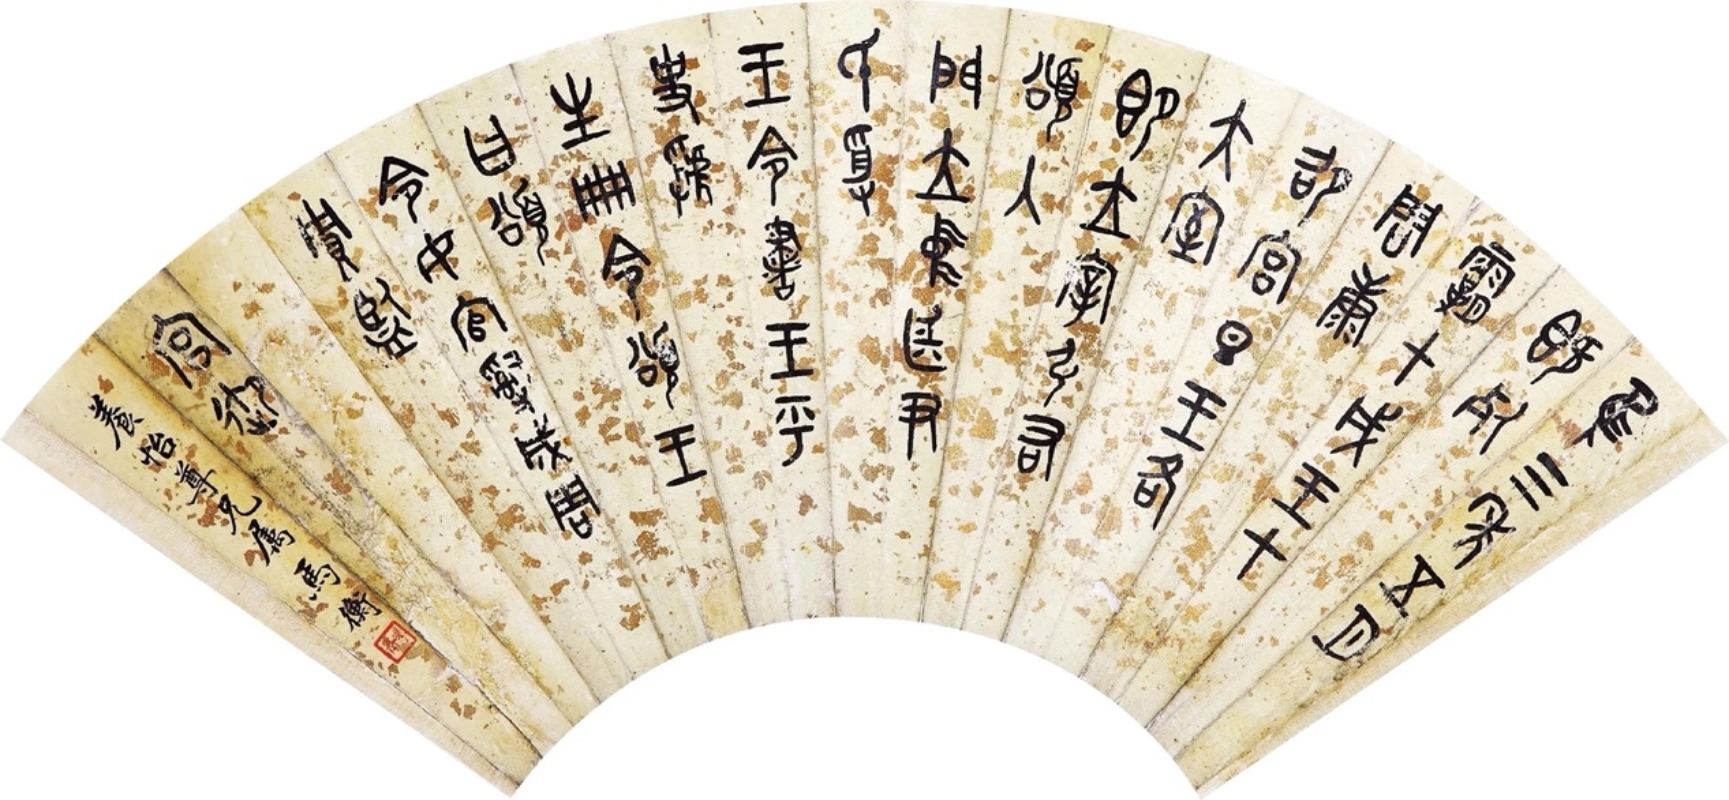 隹三年五月
既死
霸甲戌王才
周康
卲宮旦王各
大室
即立宰弘右
頌入
門立中廷尹
氏受
王令書王乎
史虢
生册令頌王
曰頌
令女官𤔲成周
貯監
宮御
養怡尊兄屬 馬衡